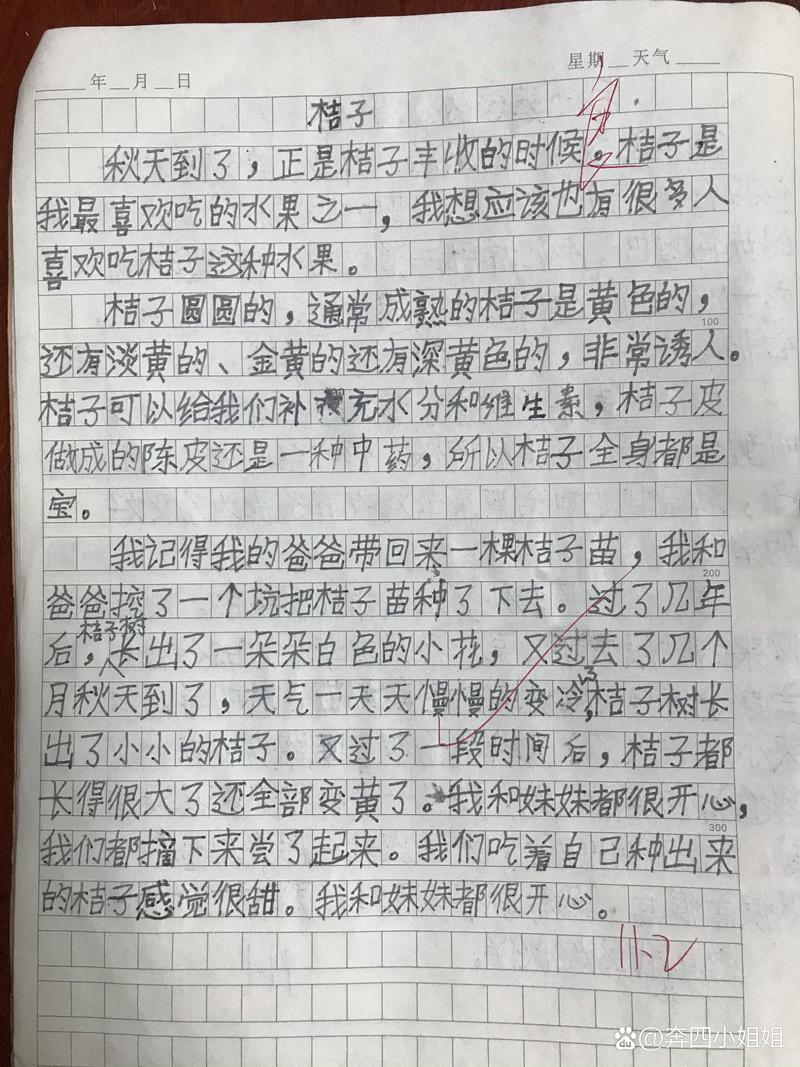 年 月 日 星期 天气
桔子
秋天到了，正是桔子丰收的时候。桔子是
我最喜欢吃的水果之一，我想应该也有很多人
喜欢吃桔子这种水果。
桔子圆圆的，通常成熟的桔子是黄色的，
100
还有淡黄的、金黄的还有深黄色的，非常诱人。
桔子可以给我们补充水分和维生素，桔子皮
做成的陈皮还是一种中药，所以桔子全身都是
宝。
我记得我的爸爸带回来一棵桔子苗，我和
200
爸爸挖了一个坑把桔子苗种了下去。过了几年
后，桔子树长出了一朵朵白色的小花，又过去了几个
月秋天到了，天气一天天慢慢的变冷了，桔子树长
出了小小的桔子。又过了一段时间后，桔子都
长得很大了还全部变黄了。我和妹妹都很开心，
300
我们都摘下来尝了起来。我们吃着自己种出来
的桔子感觉很甜。我和妹妹都很开心。
11.2
Baidu @奔四小姐姐